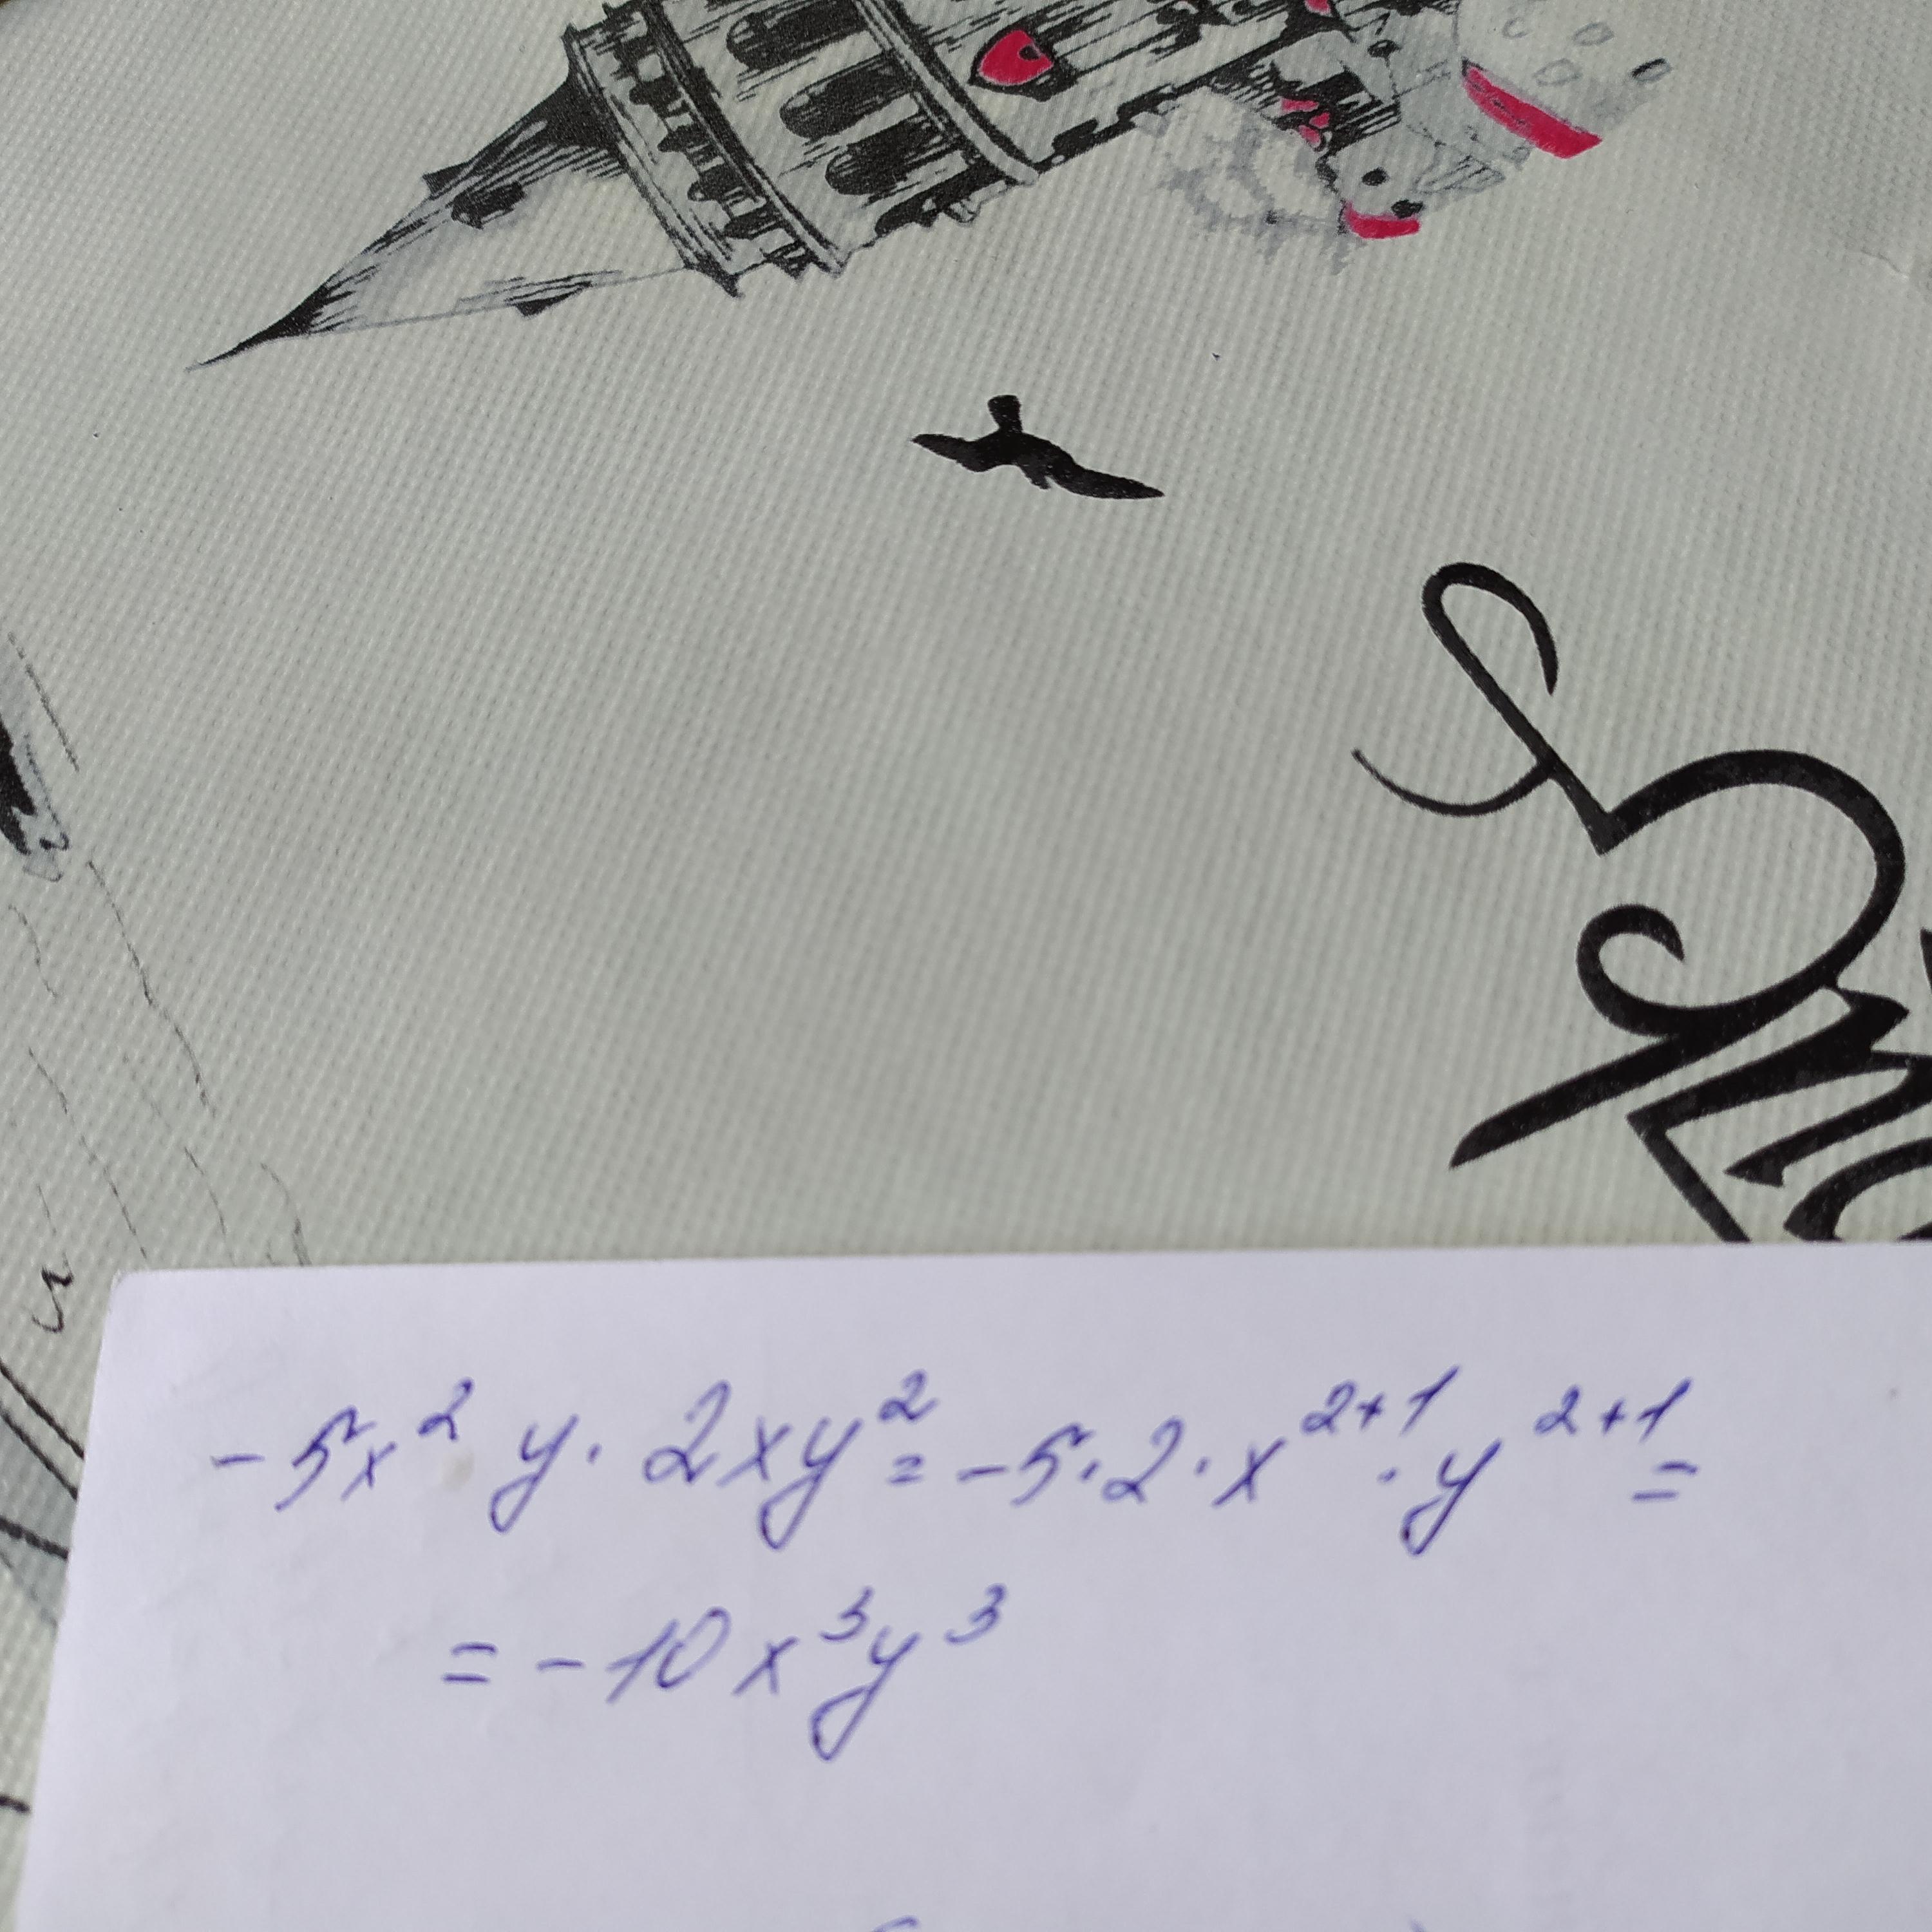 -5x² y · 2xy² = -5·2·x²⁺¹ · y²⁺¹ =
= -10x³y³